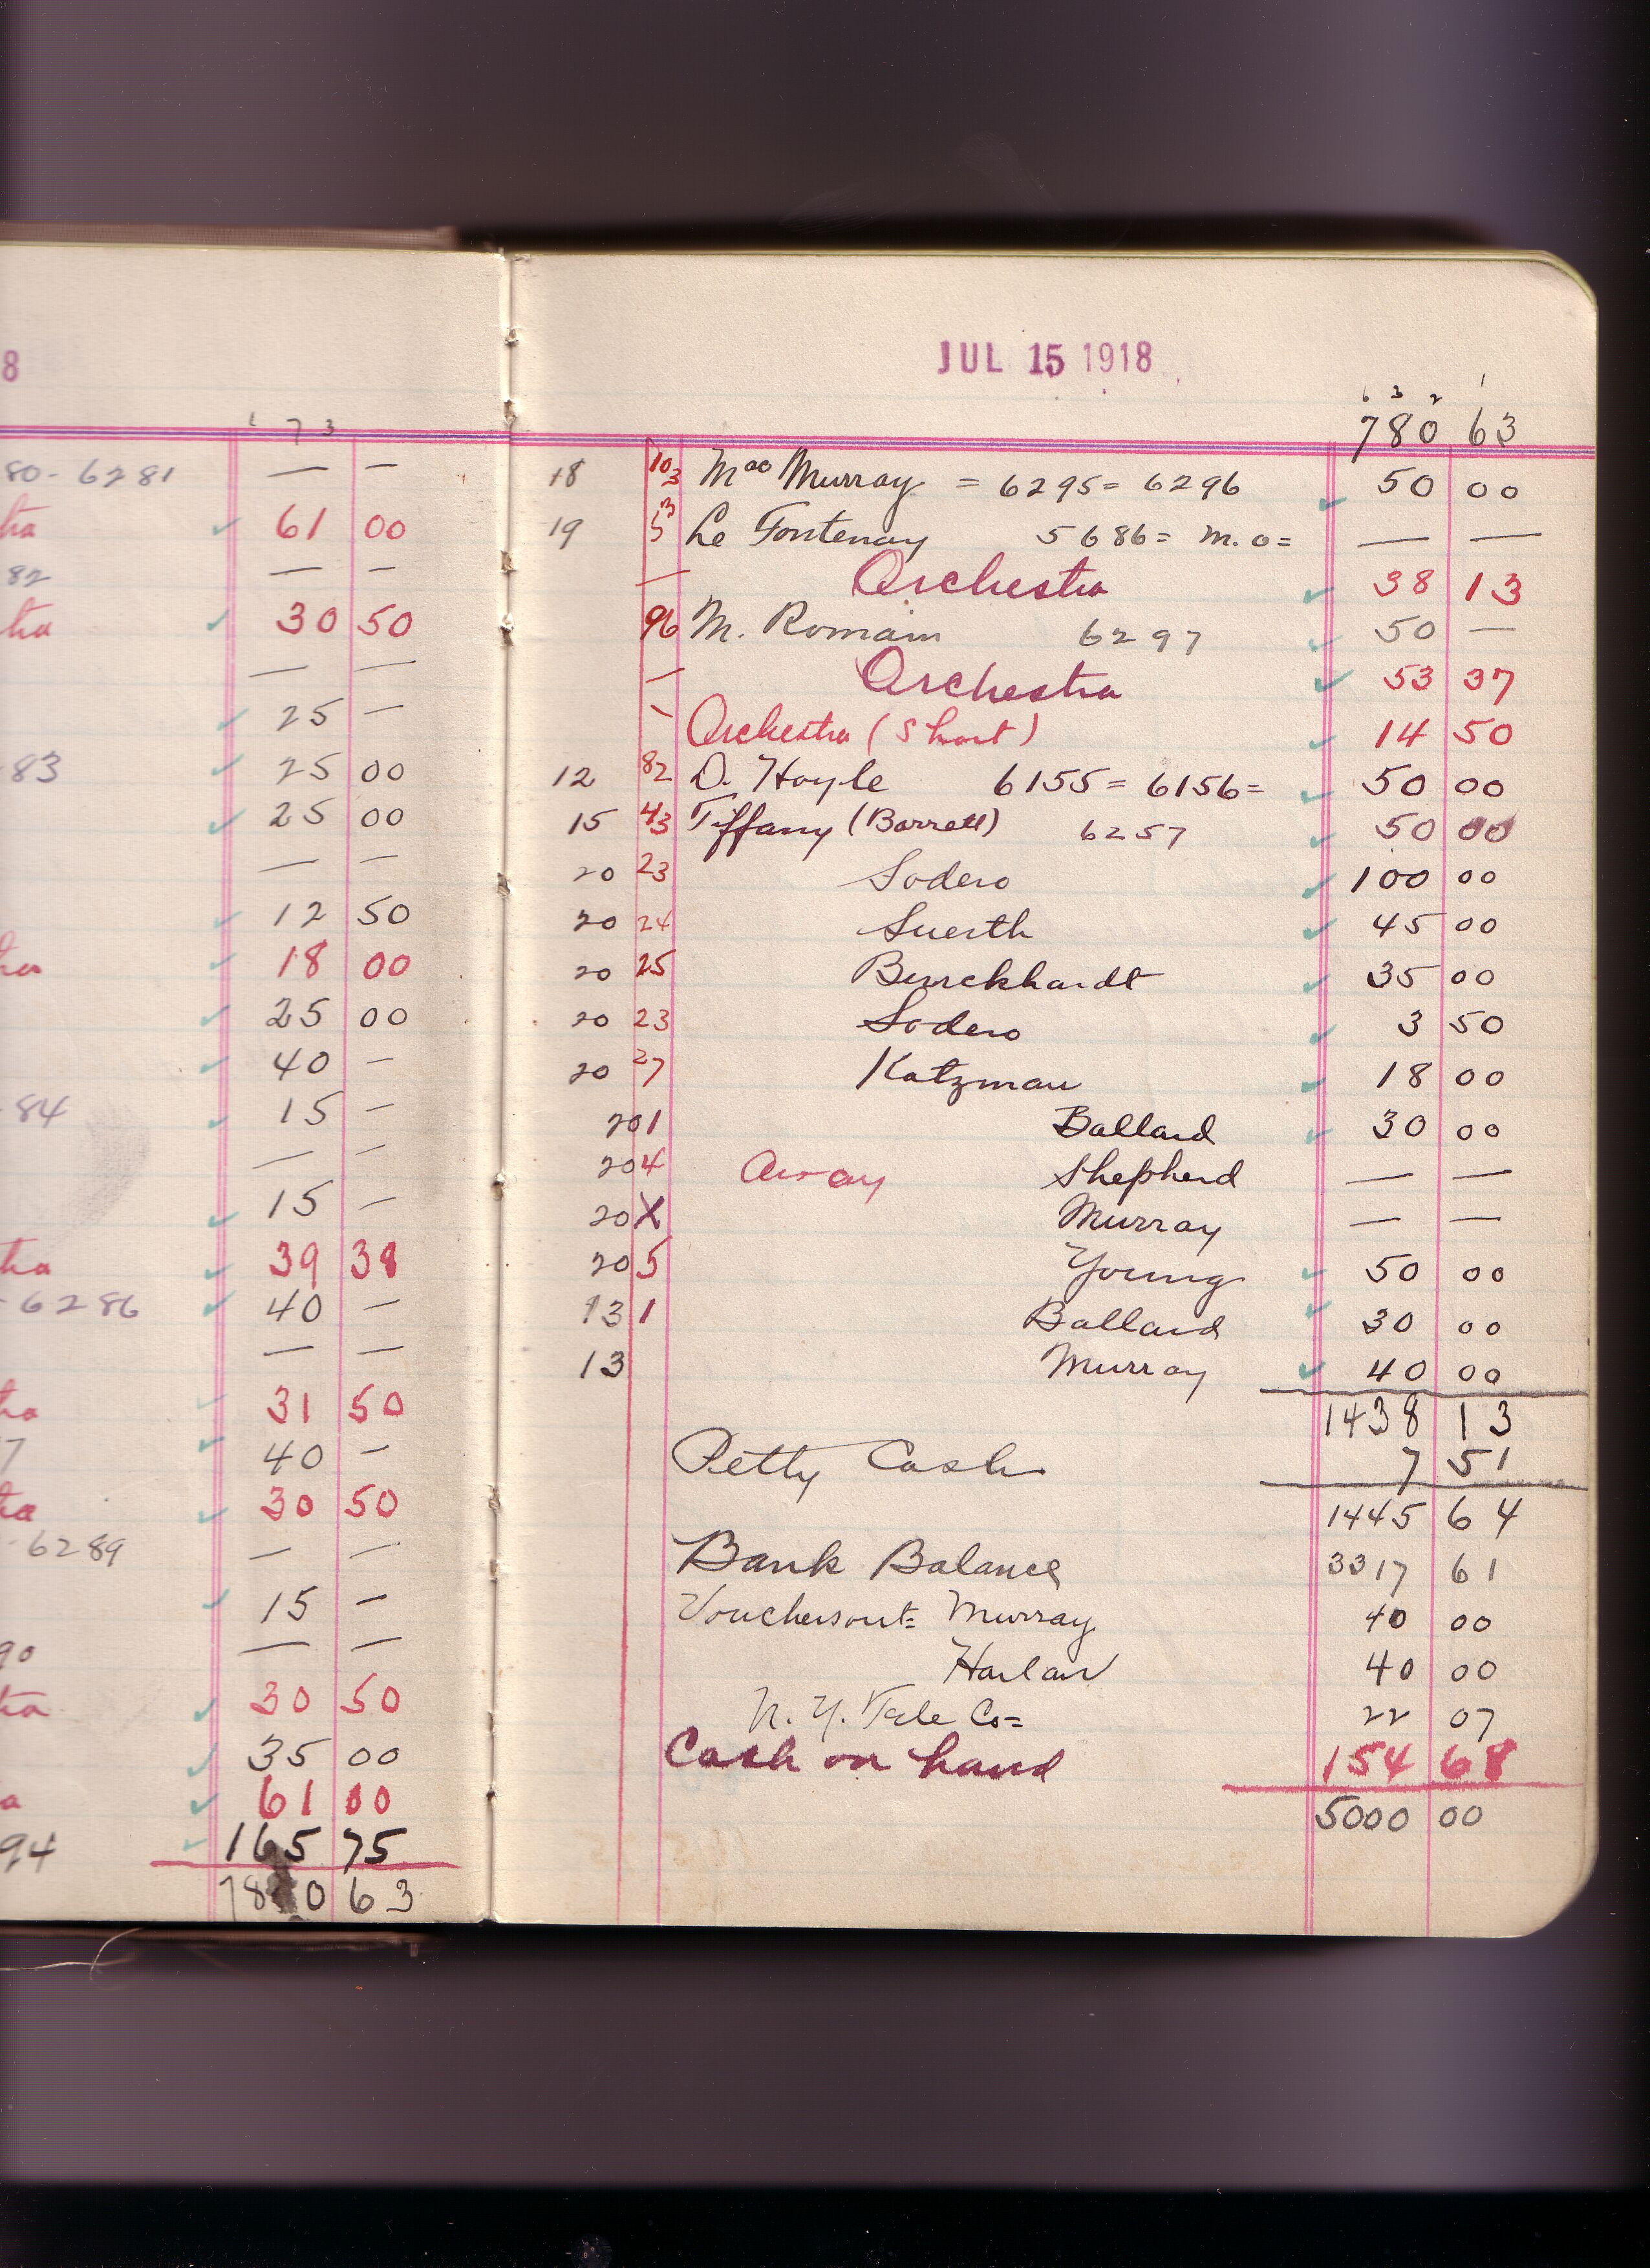 8
1 7 3
80-6281 — —
tra 61 00
82 — —
tra 30 50
— —
25 —
83 25 00
25 00
— —
12 50
tra 18 00
25 00
40 —
84 15 —
— —
15 —
tra 39 38
-6286 40 —
— —
tra 31 50
7 40 —
tra 30 50
-6289 — —
15 —
90 — —
tra 30 50
35 00
a 61 00
94 165 75
780 63
JUL 15 1918
780 63
18 103 Mae Murray = 6295= 6296 50 00
19 53 Le Fontenay 5686= M.O= — —
— Orchestra 38 13
96 M. Romain 6297 50 —
— Orchestra 53 37
Orchestra (Short) 14 50
12 82 D. Hoyle 6155= 6156= 50 00
15 43 Tiffany (Barrett) 6257 50 00
20 23 Sodero 100 00
20 24 Suerth 45 00
20 25 Burckhardt 35 00
20 23 Sodero 3 50
20 27 Katzman 18 00
20 1 Ballard 30 00
20 4 Away Shepherd — —
20 X Murray — —
20 5 Young 50 00
13 1 Ballard 30 00
13 Murray 40 00
1438 13
Petty Cash 7 51
1445 64
Bank Balance 3317 61
Vouchers out= Murray 40 00
Harlan 40 00
N. Y. Tele Co= 22 07
Cash on hand 154 68
5000 00